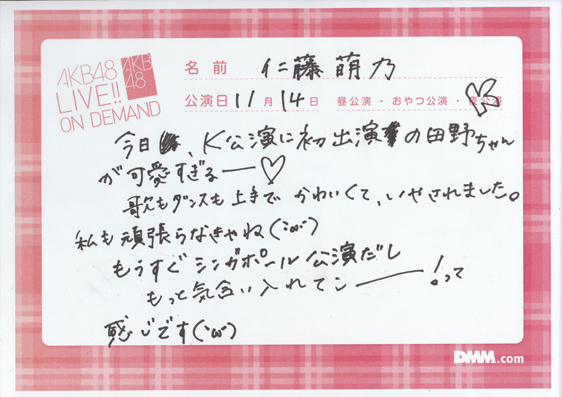 AKB48
LIVE!!
ON DEMAND
AKB
48
名前 仁藤萌乃
公演日 11月14日 昼公演・おやつ公演・夜公演
今日、K公演に初出演の田野ちゃん
が可愛すぎるー♡
歌もダンスも上手でかわいくて、いやされました。
私も頑張らなきゃね(・ω・)
もうすぐシンガポール公演だし
もっと気合い入れてこー!って
感じです(・ω・)
DMM.com